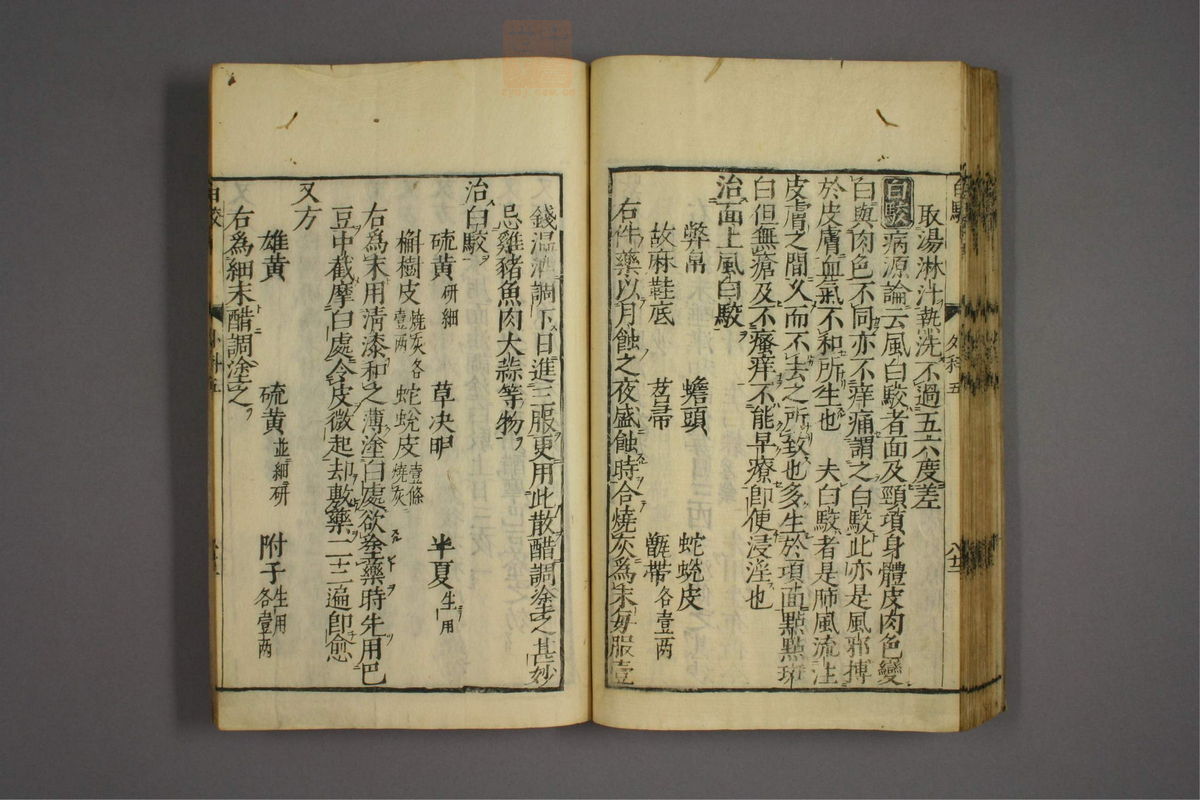 取湯淋汁熱洗不過五六度差
白駮病源論云風白駮者面及頸項身體皮肉色變
白與肉色不同亦不痒痛謂之白駮此亦是風邪搏
於皮膚血氣不和所生也　夫白駮者是肺風流注
皮膚之間久而不去之所致也多生於項面點點斑
白但無瘡及不瘙痒不能早療即便浸淫也
治面上風白駮
弊帛　蟾頭　蛇蛻皮
故麻鞋底　苕帚　甑帶各壹兩
右件藥以月蝕之夜盛蝕時合燒灰爲末每服壹
錢温酒調下日進三服更用此散醋調塗之甚妙
忌雞豬魚肉大蒜等物
治白駮
硫黄研細　草决明　半夏生用
槲樹皮燒灰各壹两　蛇蛻皮壹條燒灰
右爲末用清漆和之薄塗白處欲塗藥時先用巴
豆中截摩白處令皮微起却敷藥二三遍即愈
又方
雄黄　硫黄並細研　附子生用各壹两
右爲細末醋調塗之
白駮
外科五